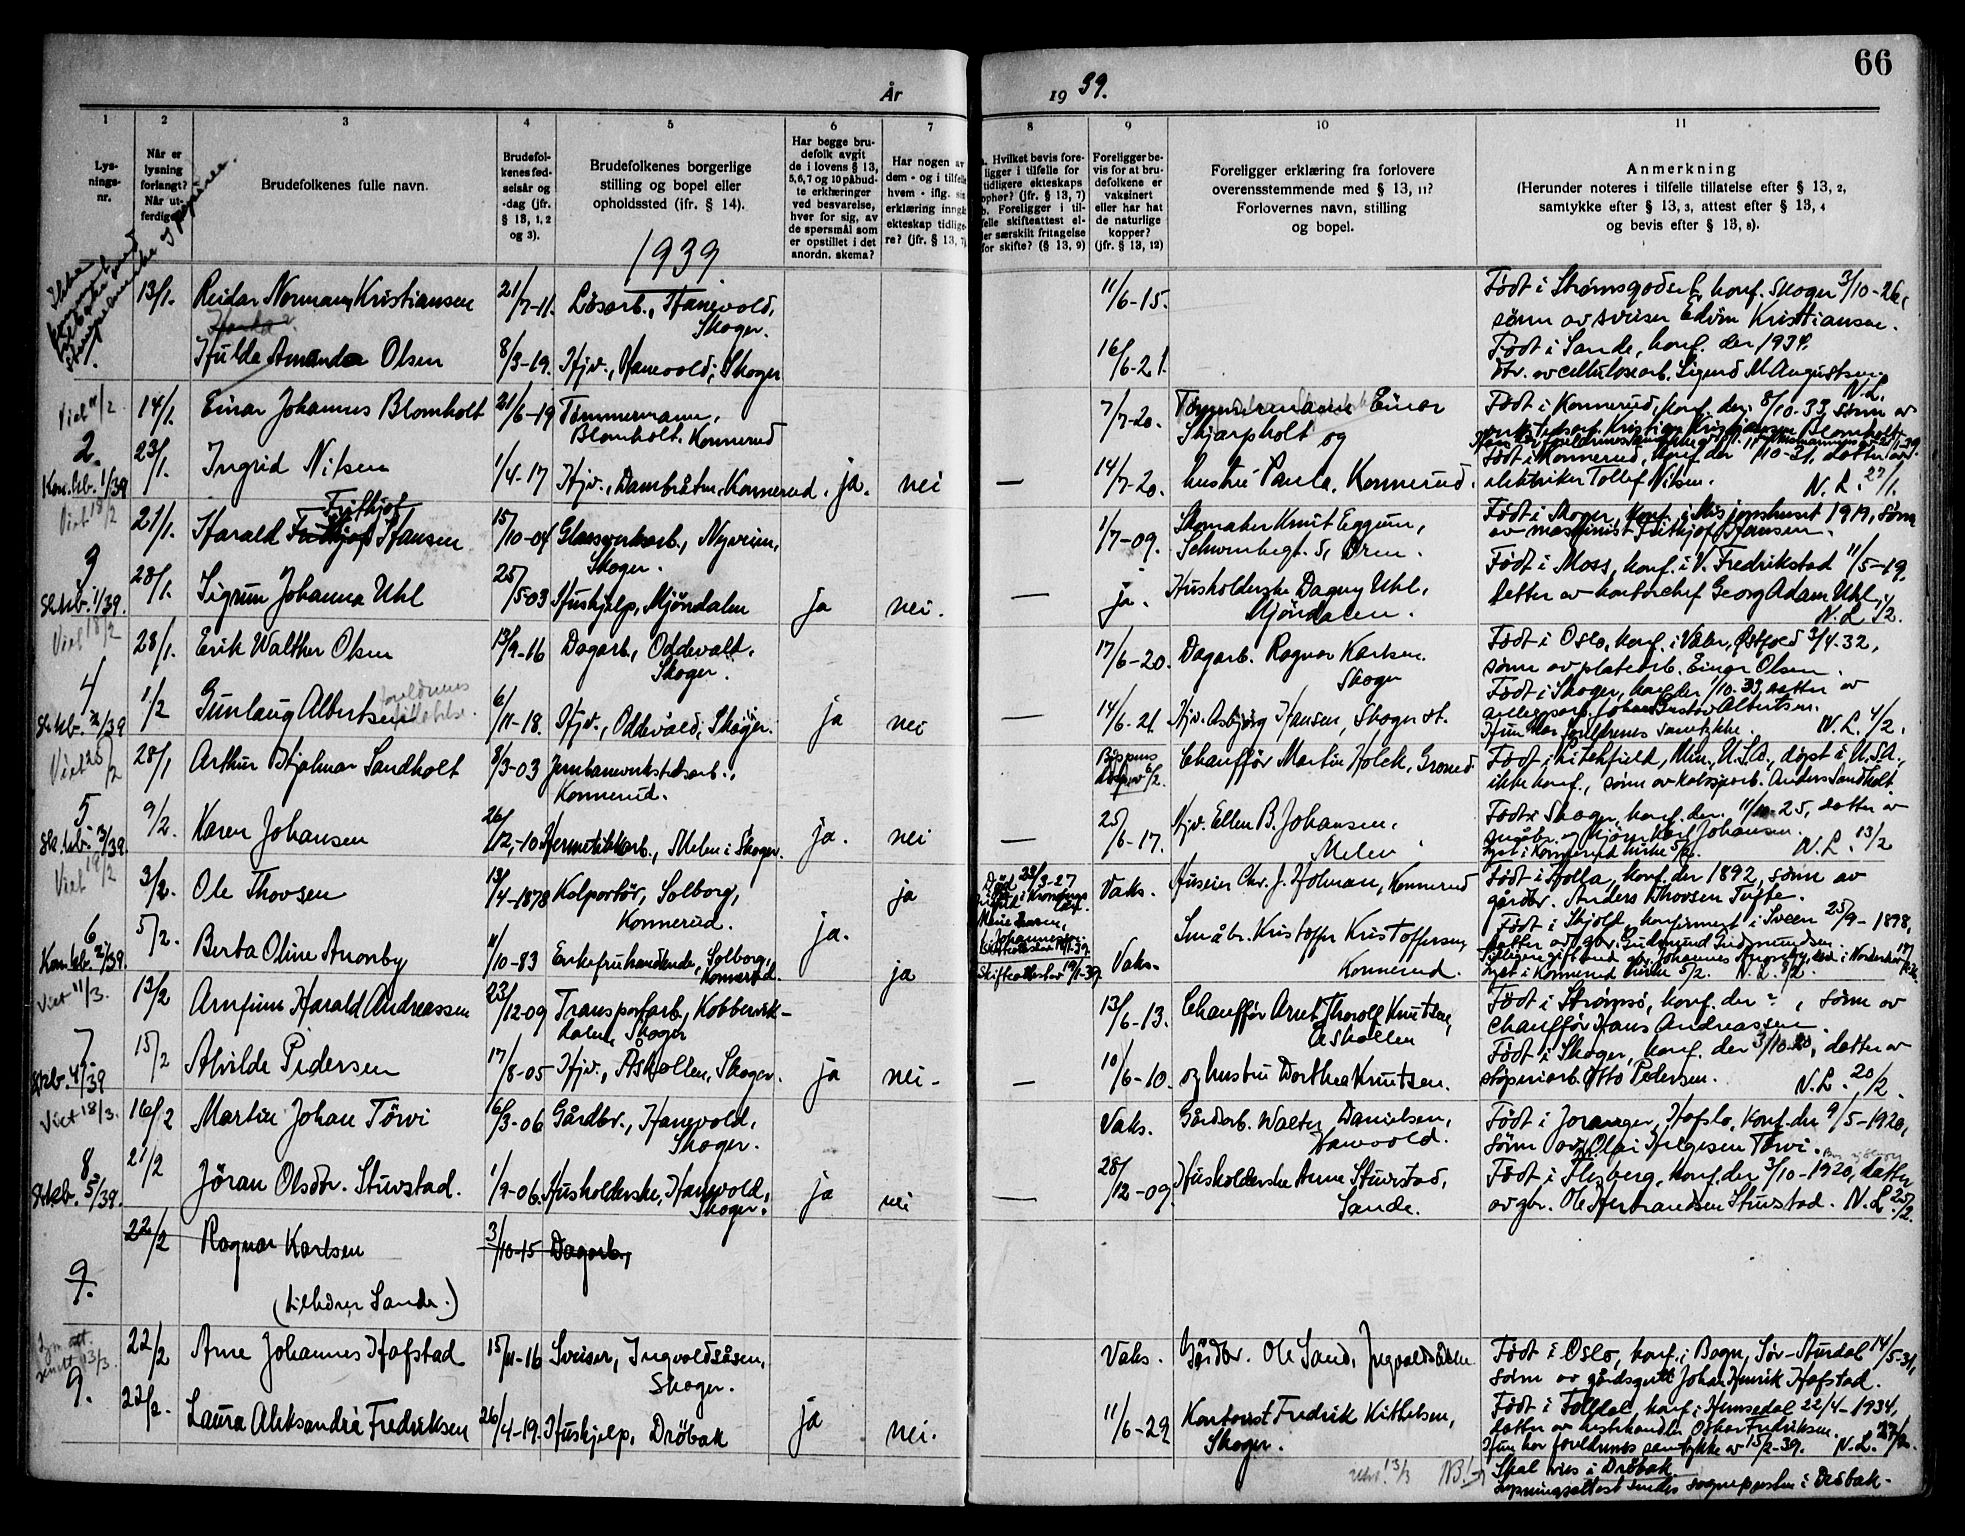 66
År 19 39.
1
2
3
4
5
6
7
8
9
10
11
Lys-
nings-
nr.
Når er
lysning
forlangt?
Når ut-
ferdiget?
Brudefolkenes fulle navn.
Brudefol-
kenes fød-
selsår og
-dag (jfr.
§ 13, 1, 2
og 3).
Brudefolkenes borgerlige
stilling og bopel eller
opholdssted (jfr. § 14).
Har begge bru-
defolk avgit
de i lovens § 13,
5, 6, 7 og 10 påbud-
te erklæringer
ved besvarelse,
hver for sig, av
de spørsmål som
er opstillet i det
anordn. skema?
Har nogen av
dem - og i tilfelle
hvem - iflg. sin
erklæring inngått
ekteskap tidlige-
re? (jfr. § 13, 7)
a. Hvilket bevis fore-
ligger i tilfelle for
tidligere ekteskaps
ophør? (jfr. § 13, 7)
b. Foreligger i til-
felle skifteattest el-
ler særskilt fritagelse
for skifte? (§ 13, 9)
Foreligger be-
vis for at bru-
defolkene er
vaksinert
eller har hat
de naturlige
kopper?
(jfr. § 13, 12)
Foreligger erklæring fra forlovere
overensstemmende med § 13, 11?
Forlovernes navn, stilling
og bopel.
Anmerkning
(Herunder noteres i tilfelle tillatelse efter § 13, 2,
samtykke efter § 13, 3, attest efter § 13, 4
og bevis efter § 13, 8).
1939
1.
13/1.
Reidar Normann Kristiansen
21/7-11.
Løsarb., Hanevold,
Skoger.
11/6-15.
Født i Strømsgodset, konf. Skoger 3/10-26,
sønn av sveiser Edvin Kristiansen.
Hulda Amanda Olsen
8/3-19.
Hjv., Hanevold, Skoger
16/6-21.
Født i Sande, konf. der 1934.
dtr. av cellulosearb. Sigurd M. Augustsen
N.L.
Viet 11/2
2.
Kon. kb. 1/39
14/1.
Einar Johannes Blomholt
21/6-19
Tømmermann,
Blomholt, Konnerud
7/7-20.
Tømmermann Einar
Skjarpholt og
Født i Konnerud, konf. der 8/10-33, sønn av
23/1.
Ingrid Nilsen
1/4-17
Hjv., Dambråten, Konnerud.
ja.
nei
—
14/7-20.
hustru Paula, Konnerud.
Født i Konnerud, konf. der 11/10-31, datter av
elektriker Tollef Nilsen.
N.L. 27/1.
Viet 18/2
3
Sk. kb. 1/39.
21/1.
Frithjof
Harald Frithjof Hansen
15/10-04
Glassverksarb., Nyveien,
Skoger.
1/7-09.
Skomaker Knut Eggum,
Schwenkegt. 5, Dren.
Født i Skoger, konf. i Misjonshuset 1919, sønn
av maskinist Frithjof Hansen.
28/1.
Sigrun Johanna Uhl
25/5-03
Hushjelp, Mjöndalen
ja
nei.
—
ja.
Husholderske Dagny Uhl,
Mjöndalen.
Født i Moss, konf. i V. Fredrikstad 11/5-19.
Datter av kontorchef Georg Adam Uhl.
N.L. 1/2.
Viet 18/2
4
Sk. kb. 2/39
28/1.
Erik Walther Olsen
13/9-16
Dagarb., Oddevald,
Skoger.
17/6-20.
Dagarb. Ragnar Karlsen
Skoger
Født i Oslo, konf. i Våler, Østfold 3/4.32,
sønn av platearb. Einar Olsen.
1/2
Gunlaug Albertsen
foreldrenes
tillatelse.
6/11-18.
Hjv., Oddevald, Skoger.
ja
nei
—
14/6-21.
Hjv. Asbjørg Hansen, Skoger st.
Født i Skoger, konf. der 1/10-33, datter av
anleggsarb. Johan Gustav Albertsen.
Hun har foreldrenes samtykke.
N.L. 4/2.
Viet 25/2
5
Sk. kb. 3/39.
28/1
Arthur Hjalmar Sandholt
8/3-03
Jernbaneverkstedsarb.,
Konnerud.
Chauffør Martin Holck, Grorud
Født i Litchfield, Min., U.S.A., døpt i U.S.A.,
ikke konf., sønn av kobosjarb. Anders Sandholt.
9/2.
Karen Johansen
26/12.-10
Hermetikkarb., Melen i Skoger.
ja.
nei
—
25/6-17.
Hjv. Ellen B. Johansen,
Melen.
Født i Skoger, konf. der 11/10-25, datter av
småbr. og kjører Karl Johansen.
Lyst i Konnerud kirke 5/2.
N.L. 13/2
Viet 19/2
6
Kon. kb. 2/39.
3/2.
Ole Thovsen
13/4-1878
Kolportør, Solborg,
Konnerud.
ja
Vaks.
Huseier Chr. J. Holman, Konnerud
Født i Holla, konf. der 1892, sønn av
gårdbr. Anders Thovsen Tufte.
5/2.
Berta Oline Anonby
11/10-83
Enkefru handlende, Solborg,
Konnerud.
ja.
ja
Skifteattester 19/1-39.
Vaks.
Småbr. Kristoffer Kristoffersen,
Konnerud.
Født i Skjold, konfirmert i Sveen 25/9-1898,
datter av gbr. Gudmund Gudmundsen.
Lyst i Konnerud kirke 5/2. N.L. 8/2.
Viet 11/3.
7.
Sk. kb. 4/39
13/2
Arnfinn Harald Andreassen
23/12-09
Transportarb., Kobbervik-
dalen, Skoger
13/6-13.
Chauffør Arnt Thorolf Knutsen,
Åskollen
Født i Strømsø, konf. der ?, sønn av
chauffør Hans Andreassen.
15/2
Alvilde Pedersen
17/8-05
Hjv., Åskollen, Skoger.
ja
nei-
—
10/6-10.
og hustru Dorthea Knutsen.
Født i Skoger, konf. der 3/10.20, datter av
støperiarb. Otto Pedersen.
N.L. 20/2.
Viet 18/3.
8
Sk. kb. 5/39.
16/2
Martin Johan Törvi
16/3-06
Gårdbr., Hanevold,
Skoger.
Vaks.
Gårdarb. Walter Danielsen,
Hanevold.
Født i Joranger, Hafslo, konf. der 9/5-1920,
sønn av Olai Helgesen Törvi.
21/2
Jöran Olsdtr. Sturstad.
1/9-06.
Husholderske, Hanevold,
Skoger.
ja
nei
—
28/12-09.
Husholderske Anne Sturstad,
Sande.
Født i Flesberg, konf. der 3/10-1920, datter
av gbr. Ole Herbrandsen Sturstad. N.L. 25/2.
9.
22/2
Ragnar Karlsen
3/10-15
Dagarb.,
(tilhører Sande.)
9.
22/2
Arne Johannes Hofstad
15/11-16
Sveiser, Ingvoldsåsen,
Skoger.
Vaks.
Gårdbr. Ole Sand, Ingvoldsåsen
Født i Oslo, konf. i Bagn, Sør-Aurdal 14/5-31,
sønn av gårdsgutt Johan Henrik Hofstad.
22/2.
Laura Aleksandra Fredriksen
26/4-19.
Hushjelp, Dröbak
ja
nei.
11/6-29
Kontorist Fredrik Kittelsen,
Skoger.
Født i Folldal, konf. i Hemsedal 22/4-1934,
datter av hestehandler Oskar Fredriksen.
Hun har foreldrenes samtykke av 15/2-39. N.L. 27/2.
13/3 NB!
Skal vies i Dröbak
Lysningsattest sendes sognepresten i Dröbak.